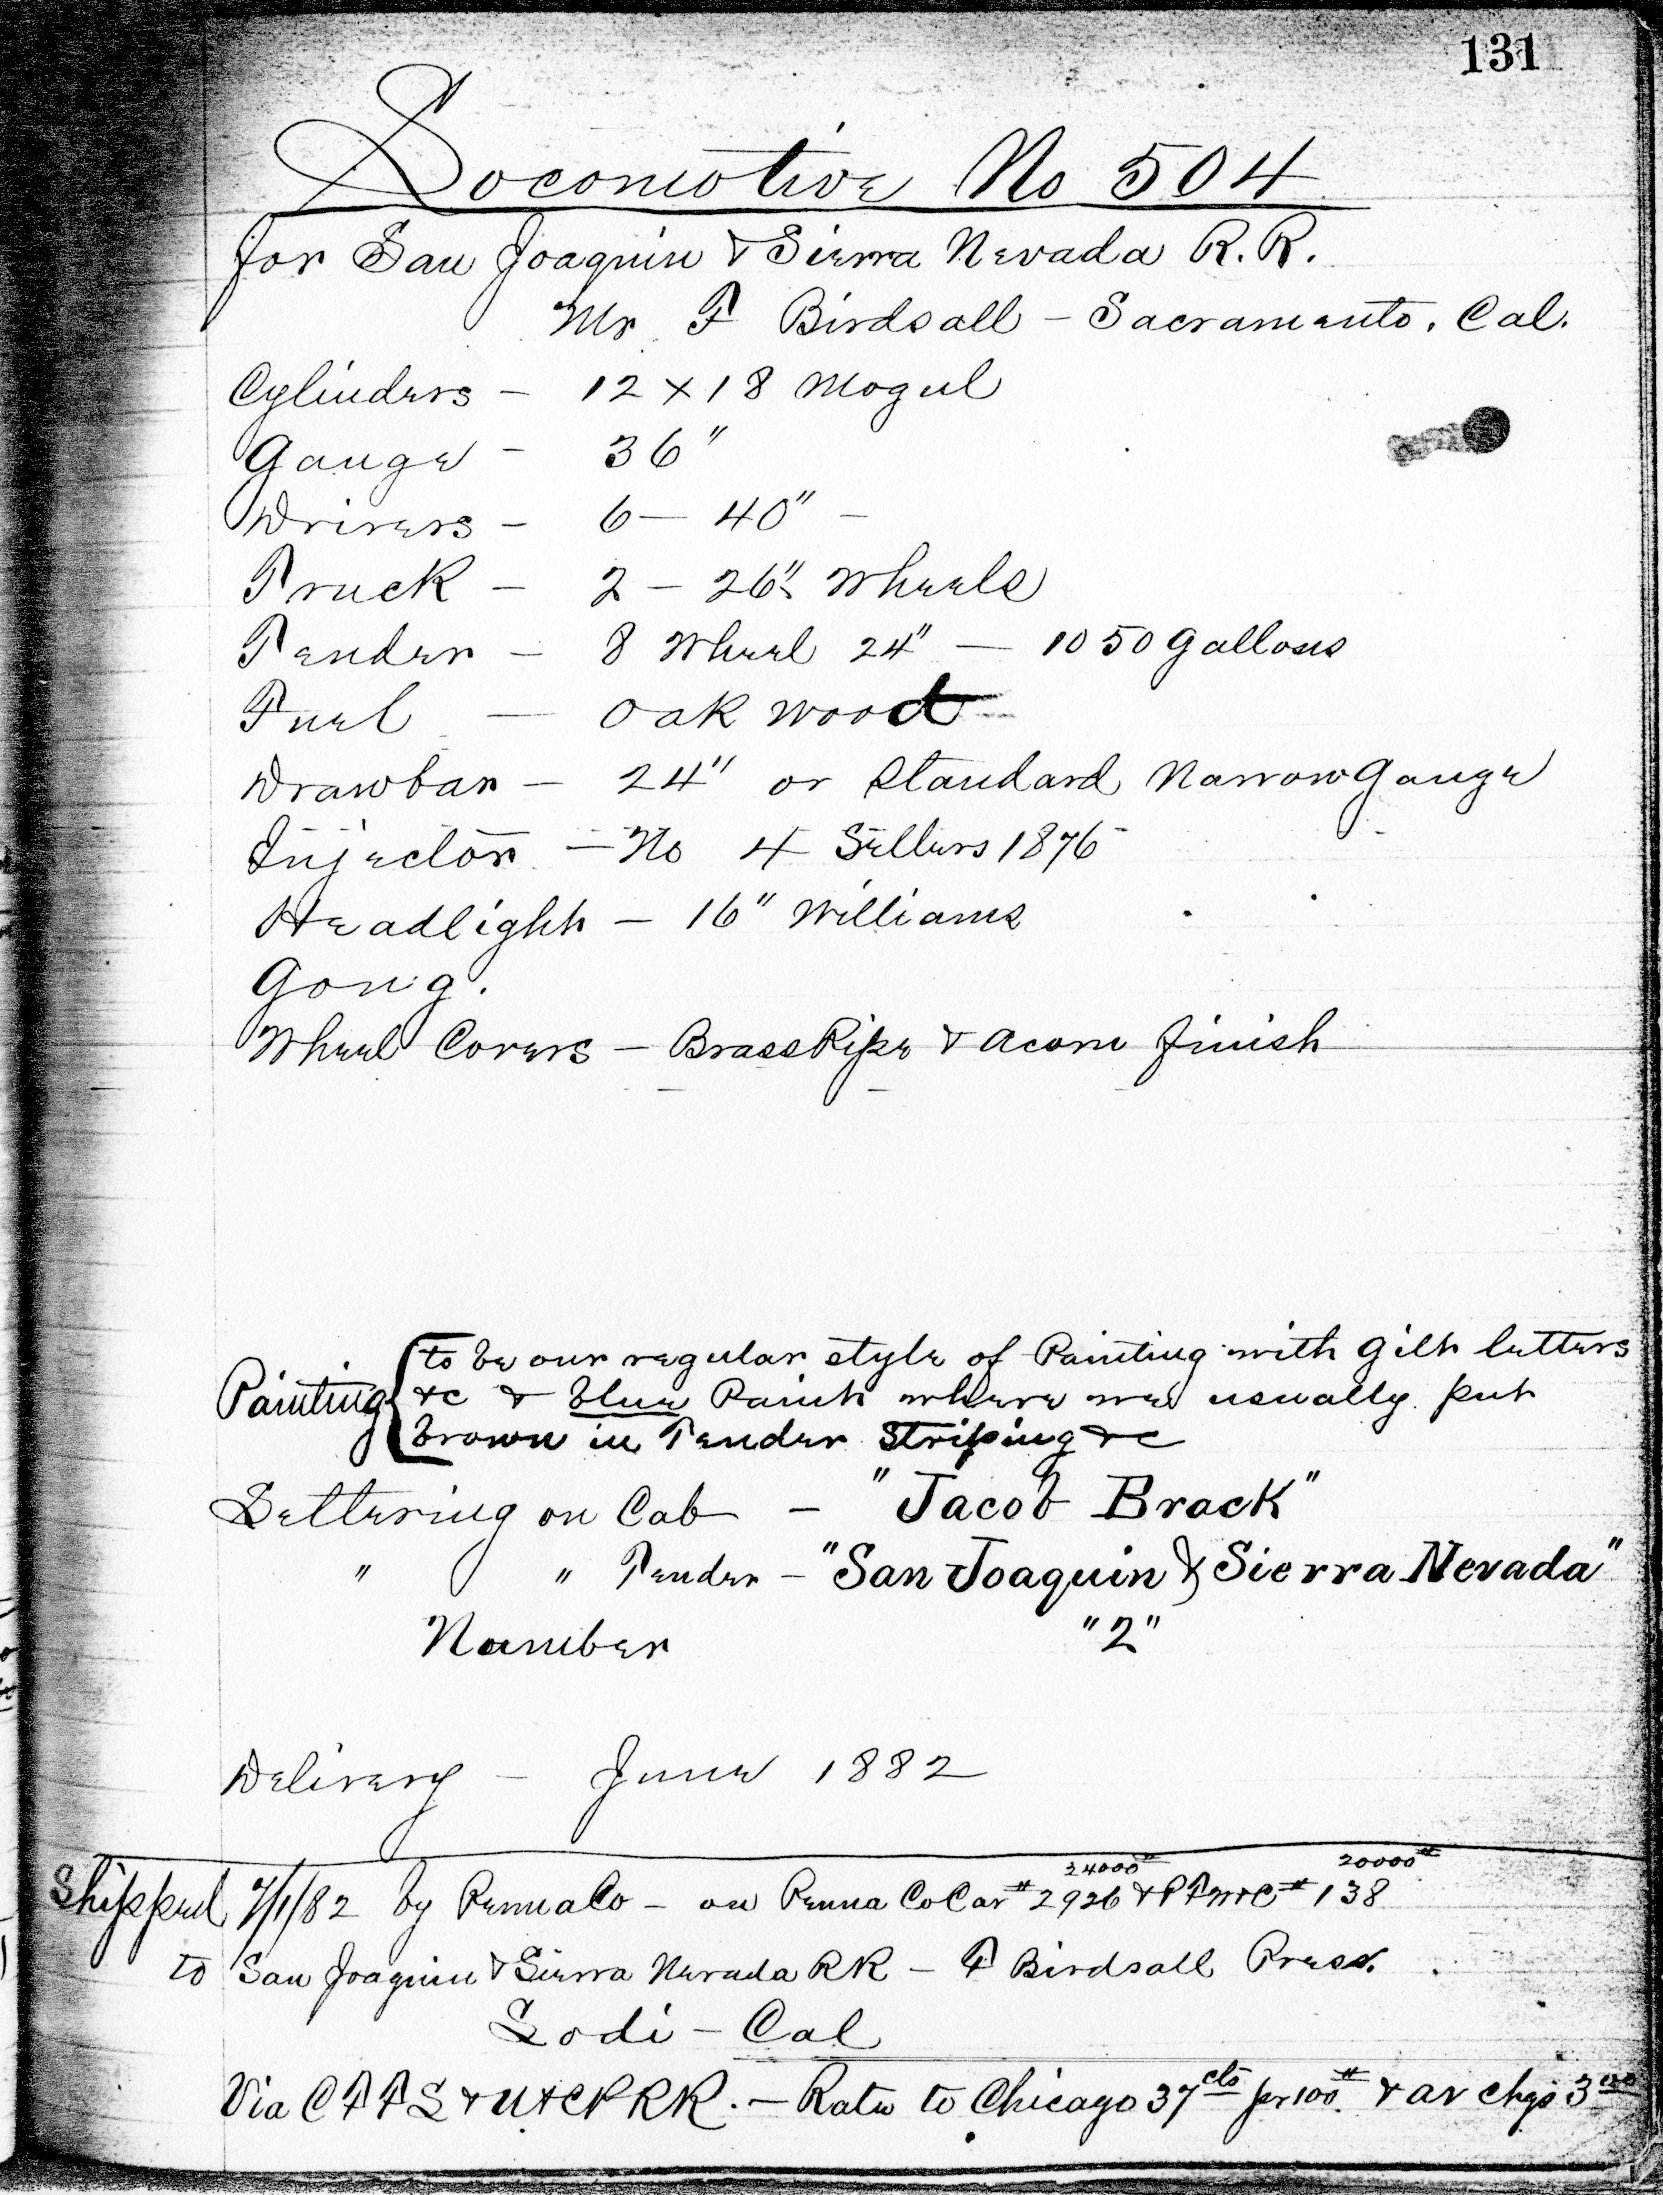 131
Locomotive No 504
for San Joaquin & Sierra Nevada R.R.
Mr F Birdsall - Sacramento. Cal.
Cylinders - 12 x 18 Mogul
Gauge - 36"
Drivers - 6 - 40" -
Truck - 2 - 26" Wheels
Tender - 8 Wheel 24" - 1050 Gallons
Fuel - Oak Wood
Drawbar - 24" or Standard Narrow Gauge
Injector - No 4 Sellers 1876
Headlight - 16" Williams
Gong.
Wheel Covers - Brass Pipe & Acorn finish
to be our regular style of Painting with Gilt letters
Painting { &c & blue Paint where we usually put
brown in Tender Striping &c
Lettering on Cab - "Jacob Brack"
" " Tender - "San Joaquin & Sierra Nevada"
Number "2"
Delivery - June 1882
24000# 20000#
Shipped 7/1/82 by Penna Co - on Penna Co Car # 2926 & PFW&C # 138
to San Joaquin & Sierra Nevada RR - F Birdsall Prest.
Lodi - Cal
Via C F F L & U & CP RR. - Rate to Chicago 37 cts per 100 # & av chgs 3.00